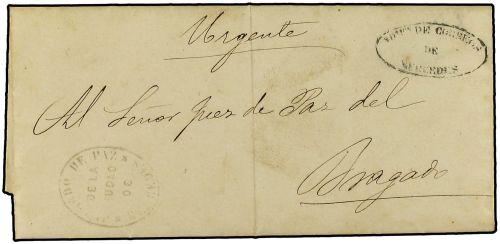 Urgente
ADON DE CORREOS
DE
MERCEDES
Al Señor Juez de Paz del
Bragado
JUZGADO DE PAZ